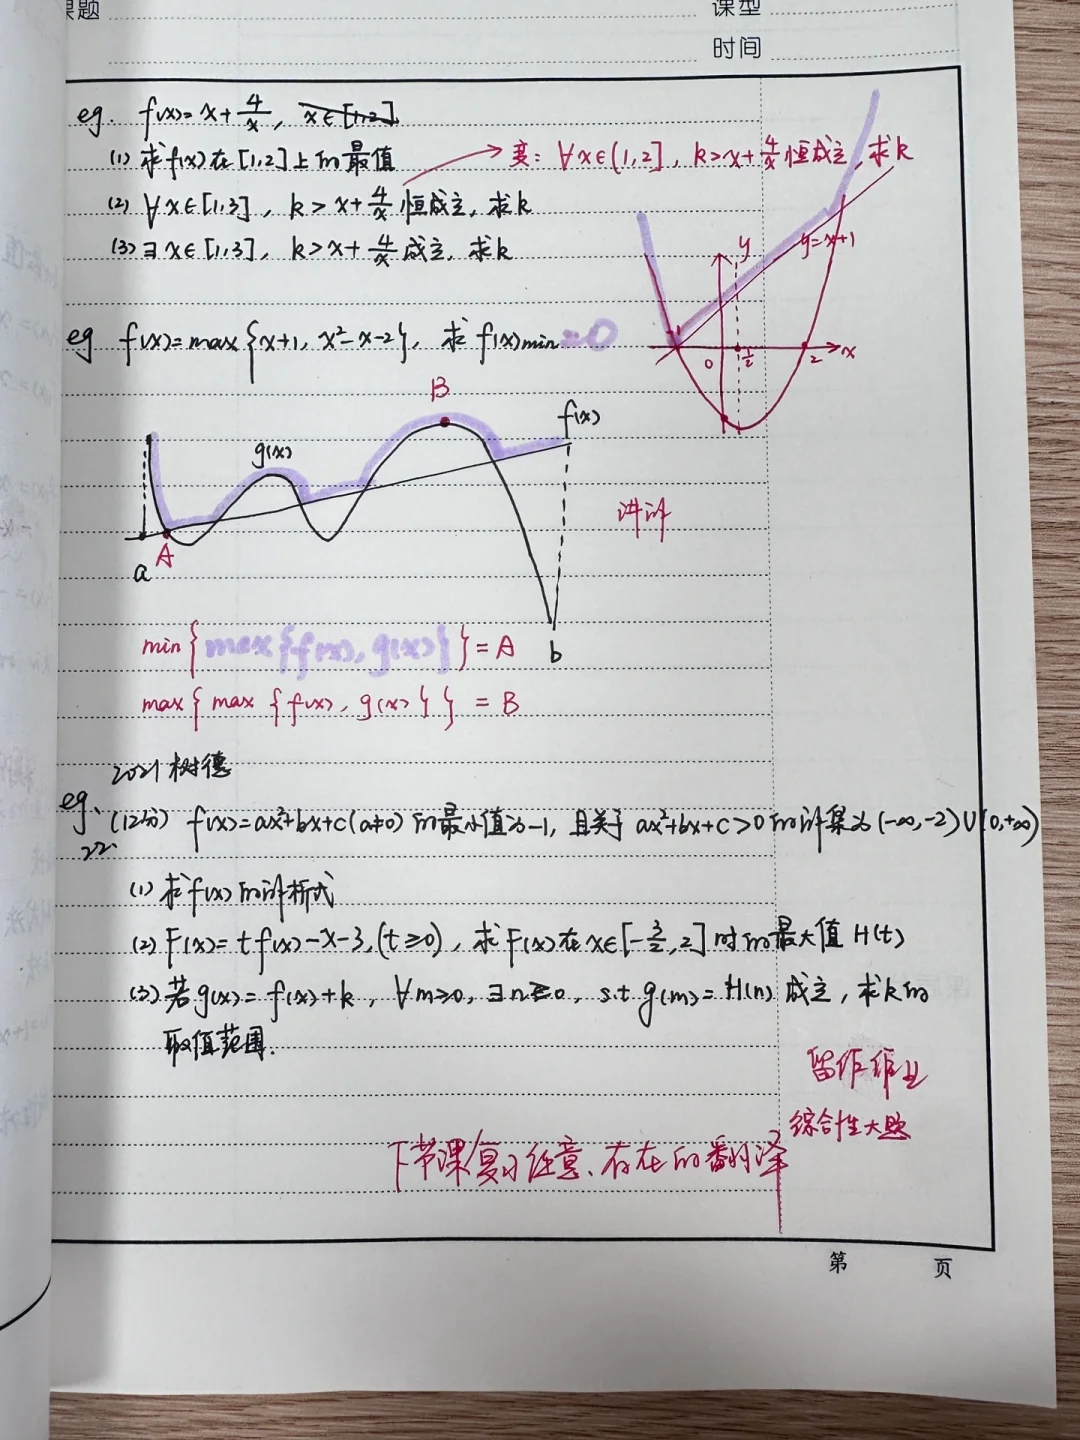 课题
课型
时间
eg. f(x)=x+4/x, x∈[1,2]
(1) 求f(x)在[1,2]上的最值
变: ∀x∈(1,2], k>x+4/x恒成立, 求k
(2) ∀x∈[1,3], k>x+4/x恒成立, 求k
(3) ∃x∈[1,3], k>x+4/x成立, 求k
y
y=x+1
-1
0
1/2
2
x
eg f(x)=max{x+1, x²-x-2}, 求f(x)min=0
B
f(x)
g(x)
A
a
b
讲评
min{max{f(x), g(x)}}=A
max{max{f(x), g(x)}}=B
2021树德
eg.
22.
(12分) f(x)=ax²+bx+c(a≠0)的最小值为-1, 且关于ax²+bx+c>0的解集为(-∞,-2)∪(0,+∞)
(1) 求f(x)的解析式
(2) F(x)=tf(x)-x-3,(t≥0), 求F(x)在x∈[-3/2,2]时的最大值H(t)
(3) 若g(x)=f(x)+k, ∀m≥0, ∃n≥0, s.t g(m)=H(n)成立, 求k的
取值范围.
留作作业
综合性大题
下节课复习任意、存在的翻译
第 页